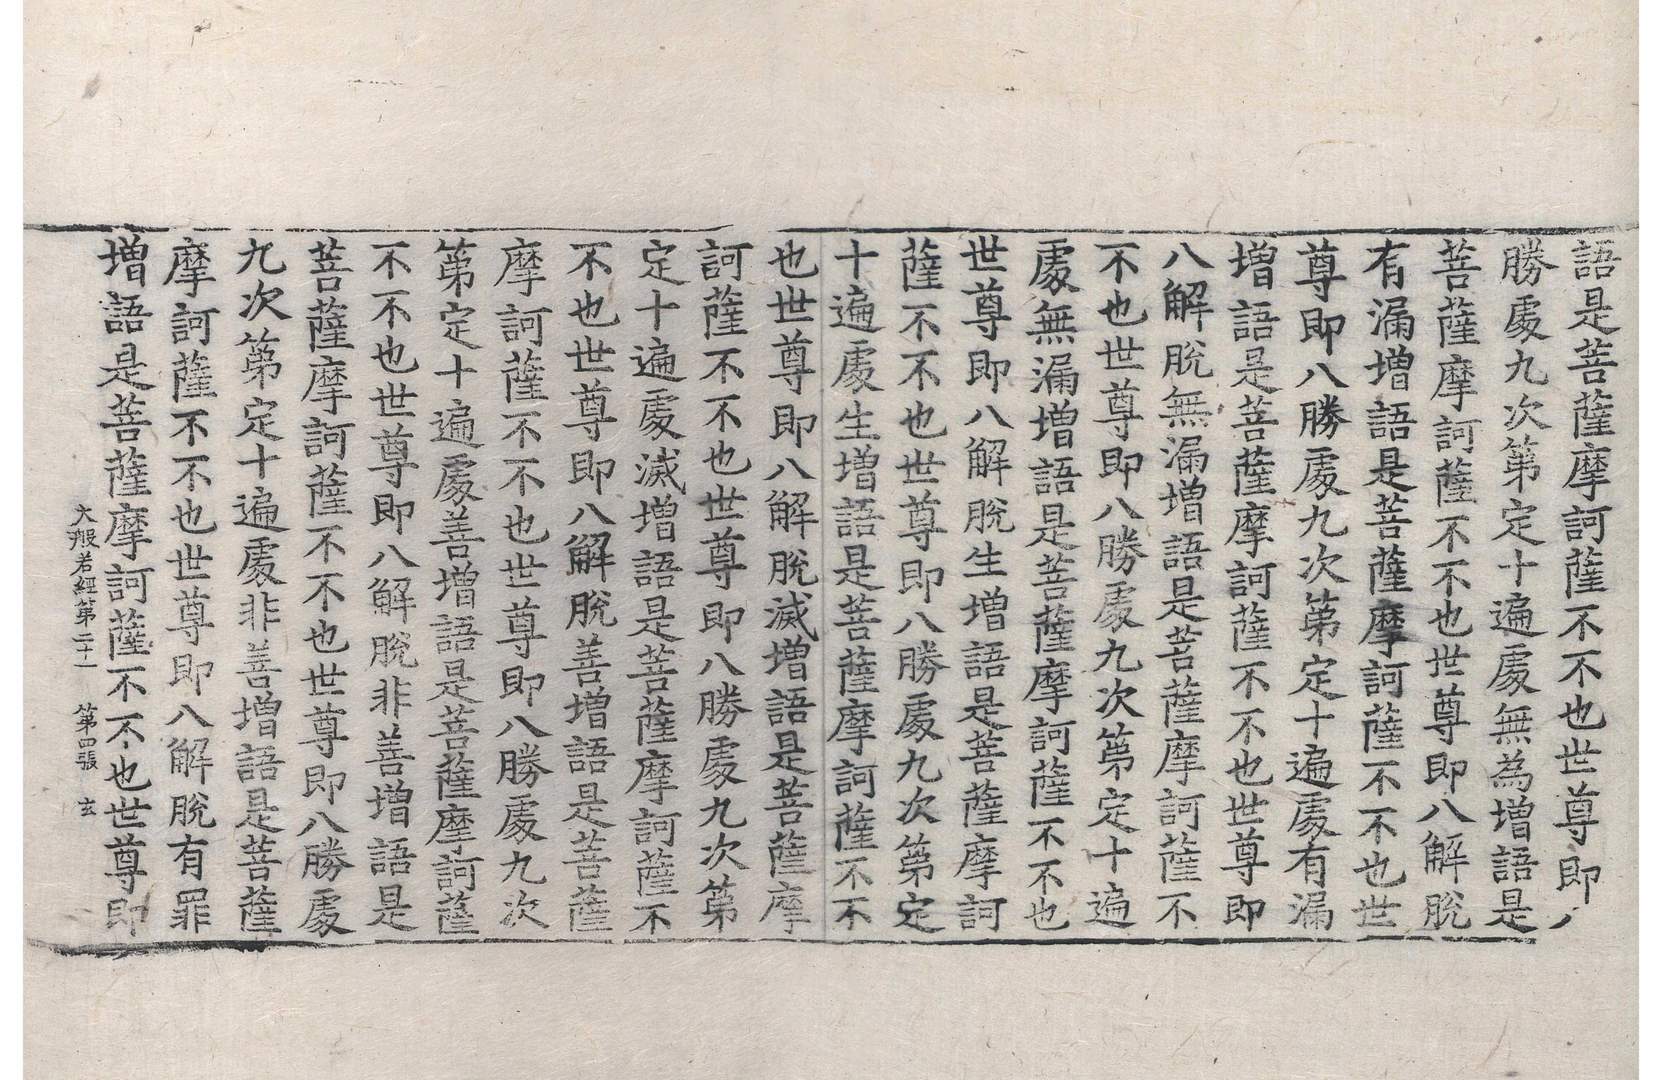 語是菩薩摩訶薩不不也世尊即八
勝處九次第定十遍處無為增語是
菩薩摩訶薩不不也世尊即八解脫
有漏增語是菩薩摩訶薩不不也世
尊即八勝處九次第定十遍處有漏
增語是菩薩摩訶薩不不也世尊即
八解脫無漏增語是菩薩摩訶薩不
不也世尊即八勝處九次第定十遍
處無漏增語是菩薩摩訶薩不不也
世尊即八解脫生增語是菩薩摩訶
薩不不也世尊即八勝處九次第定
十遍處生增語是菩薩摩訶薩不不
也世尊即八解脫滅增語是菩薩摩
訶薩不不也世尊即八勝處九次第
定十遍處滅增語是菩薩摩訶薩不
不也世尊即八解脫善增語是菩薩
摩訶薩不不也世尊即八勝處九次
第定十遍處善增語是菩薩摩訶薩
不不也世尊即八解脫非善增語是
菩薩摩訶薩不不也世尊即八勝處
九次第定十遍處非善增語是菩薩
摩訶薩不不也世尊即八解脫有罪
增語是菩薩摩訶薩不不也世尊即
大般若經第二十一 第四張 玄